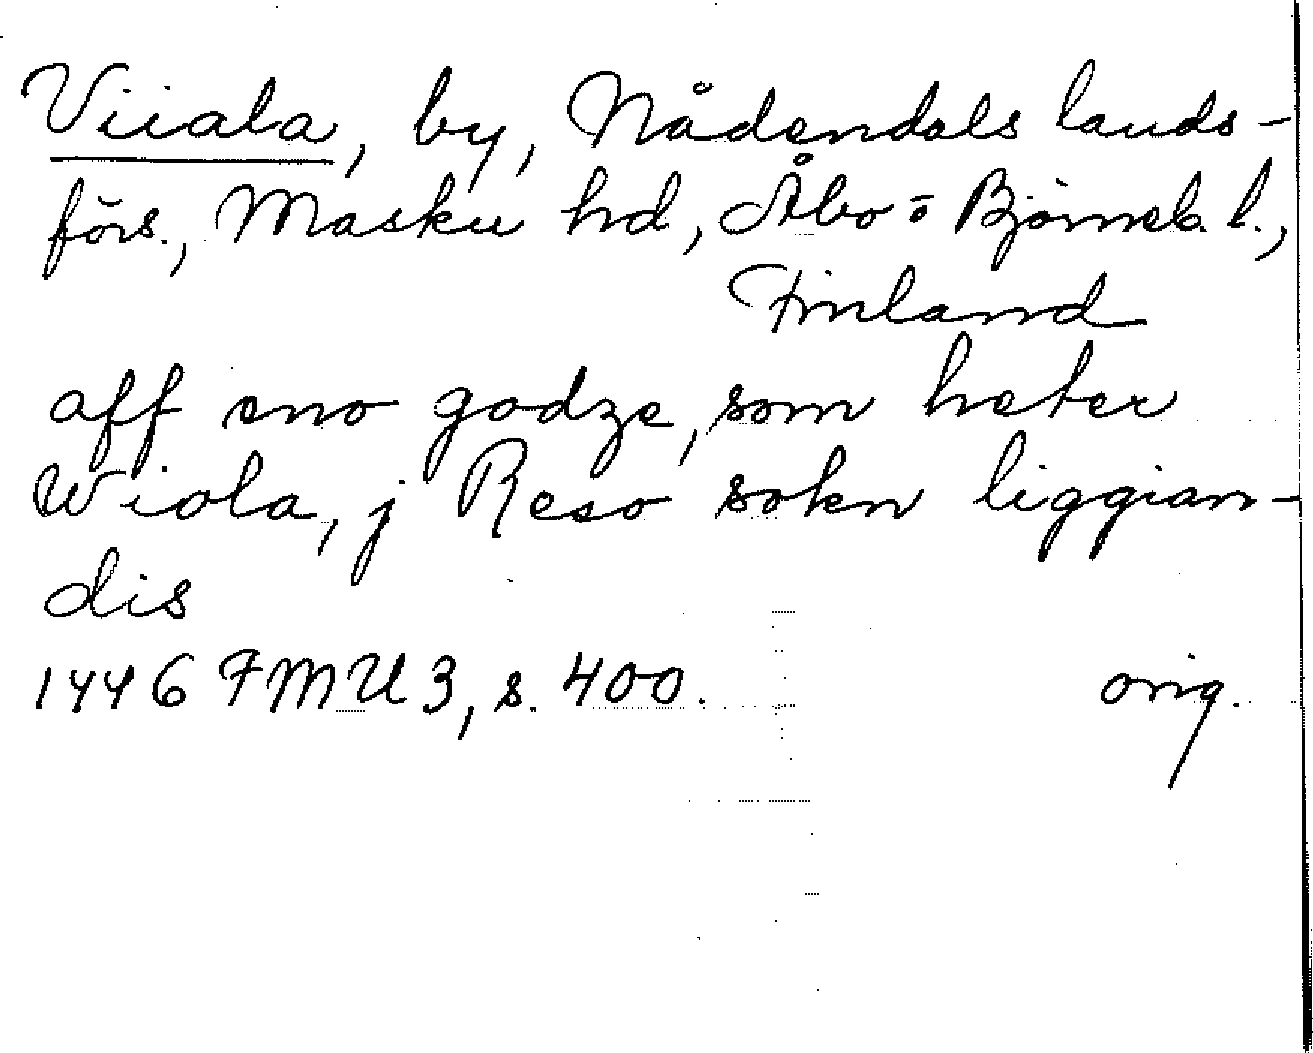 Viiala, by, Nådendals lands-
förs., Masku hd, Åbo o Björneb. l.,
Finland
aff eno godze, som heter
Wiola, j Reso sokn liggian-
dis
1446 FMU 3, s. 400. orig.